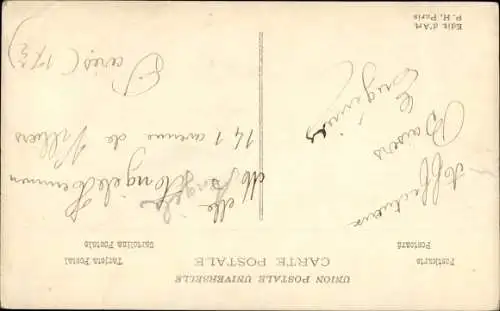 UNION POSTALE UNIVERSELLE
CARTE POSTALE
Postkarte
Postcard
Tarjeta Postal
Cartolina Postale
Affectueux
Baisers
Eugénie
Mlle
141 avenue de Villiers
Paris (17e)
Edit. d'Art.
P. H. Paris